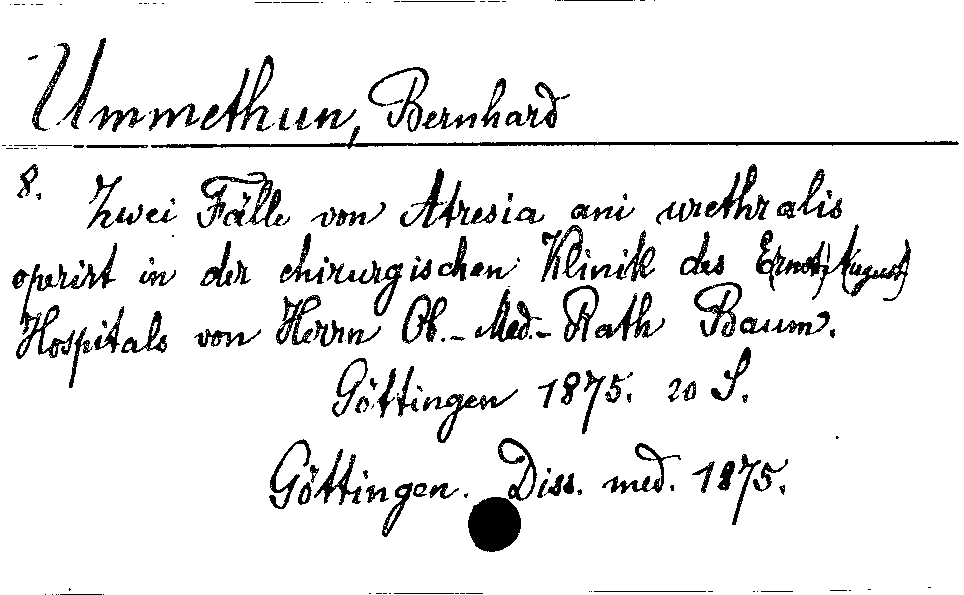 Ummethun, Bernhard
8. Zwei Fälle von Atresia ani urethralis
operirt in der chirurgischen Klinik des Ernst) August)
Hospitals von Herrn Ob.- Med.- Rath Baum.
Göttingen 1875. 20 S.
Göttingen. Diss. med. 1875.